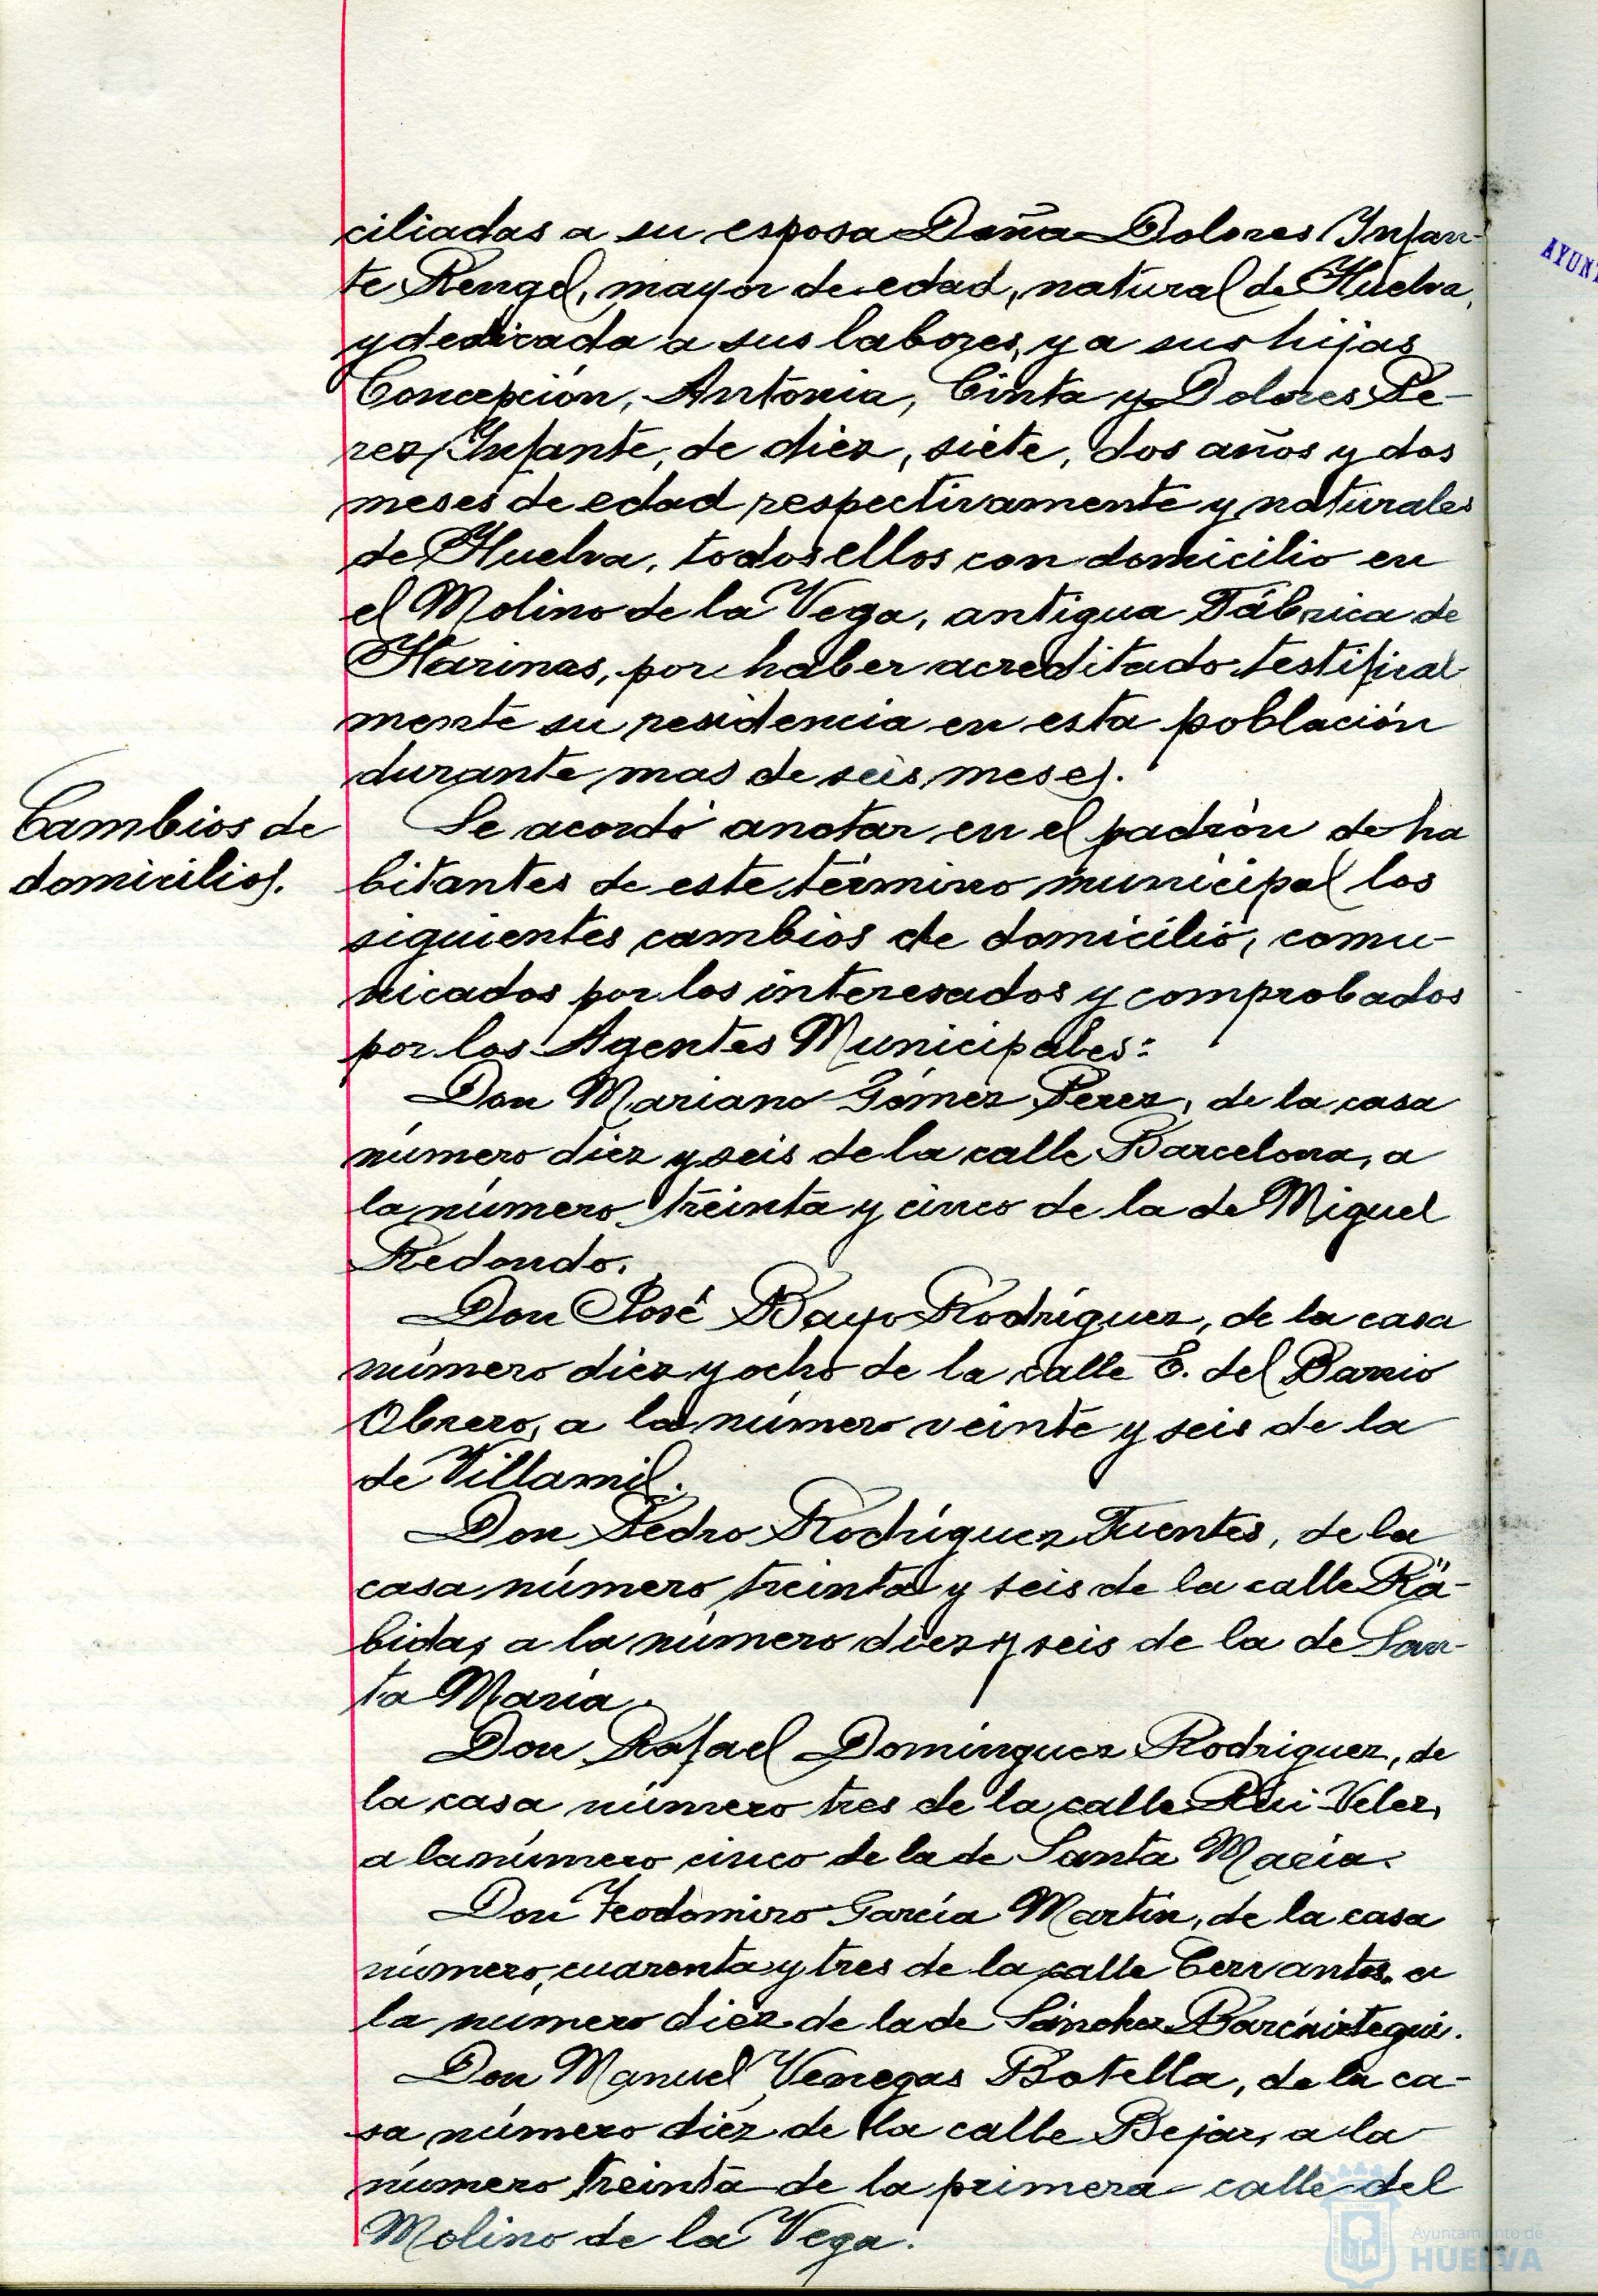 ciliadas a su esposa Doña Dolores Infan-
te Rengel, mayor de edad, natural de Huelva,
y dedicada a sus labores, y a sus hijas
Concepción, Antonia, Cinta y Dolores Pe-
rez Infante, de diez, siete, dos años y dos
meses de edad respectivamente y naturales
de Huelva, todos ellos con domicilio en
el Molino de la Vega, antigua Fábrica de
Harinas, por haber acreditado testifical
mente su residencia en esta población
durante mas de seis meses.
Cambios de
domicilios.
Se acordó anotar en el padrón de ha
bitantes de este término municipal los
siguientes cambios de domicilio, comu-
nicados por los interesados y comprobados
por los Agentes Municipales:
Don Mariano Gómez Perez, de la casa
número diez y seis de la calle Barcelona, a
la número treinta y cinco de la de Miguel
Redondo.
Don José Bayo Rodríguez, de la casa
número diez y ocho de la calle E. del Barrio
Obrero, a la número veinte y seis de la
de Villamil.
Don Pedro Rodríguez Fuentes, de la
casa número treinta y seis de la calle Rá-
bida, a la número diez y seis de la de San-
ta María.
Don Rafael Domínguez Rodriguez, de
la casa número tres de la calle Rui-Velez,
a la número cinco de la de Santa María.
Don Teodomiro García Martín, de la casa
número cuarenta y tres de la calle Cervantes. a
la numero diez de la de Sánchez Barcáiztegui.
Don Manuel Venegas Botella, de la ca-
sa número diez de la calle Bejar, a la
número treinta de la primera calle del
Molino de la Vega.
AYUNT
Ayuntamiento de
HUELVA